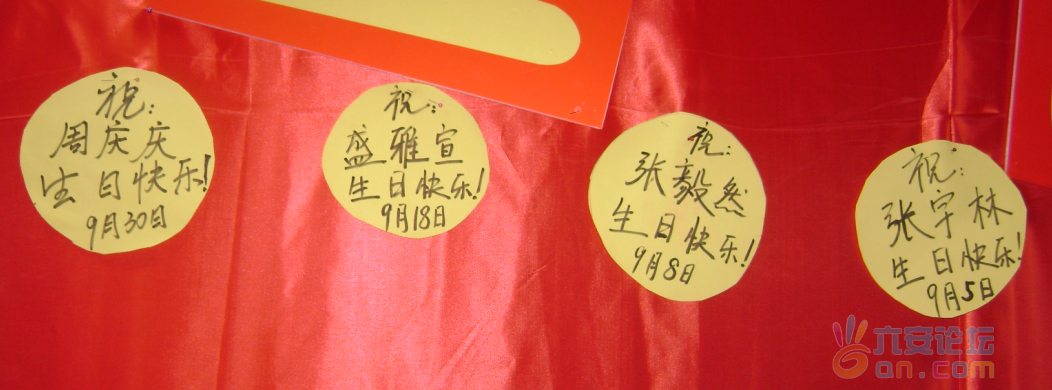 祝:
周庆庆
生日快乐!
9月30日
祝:
盛雅宣
生日快乐!
9月18日
祝:
张毅然
生日快乐!
9月8日
祝:
张宇林
生日快乐!
9月5日
六安论坛
an.com